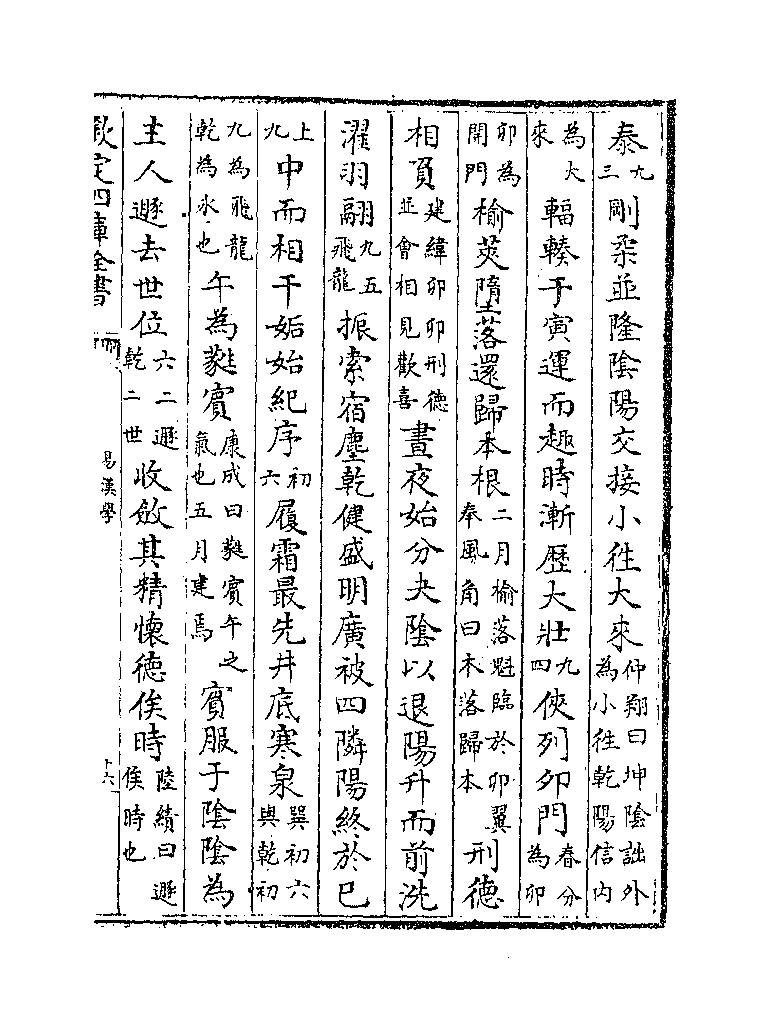 泰九三剛柔並隆陰陽交接小往大來仲翔曰坤陰詘外為小往乾陽信内
為大來輻輳于寅運而趣時漸歷大壯九四俠列卯門春分為卯
卯為開門榆莢墮落還歸本根二月榆落魁臨於卯翼奉風角曰木落歸本刑德
相負建緯卯卯刑德並會相見歡喜晝夜始分夬陰以退陽升而前洗
濯羽翮九五飛龍振索宿塵乾健盛明廣被四隣陽終於巳
上九中而相干姤始紀序初六履霜最先井底寒泉巽初六與乾初
九為飛龍乾為冰也午為蕤賔康成曰蕤賔午之氣也五月建焉賔服于陰陰為
主人遯去世位六二遯乾二世收斂其精懷德俟時陸績曰遯俟時也
欽定四庫全書
易漢學
十六